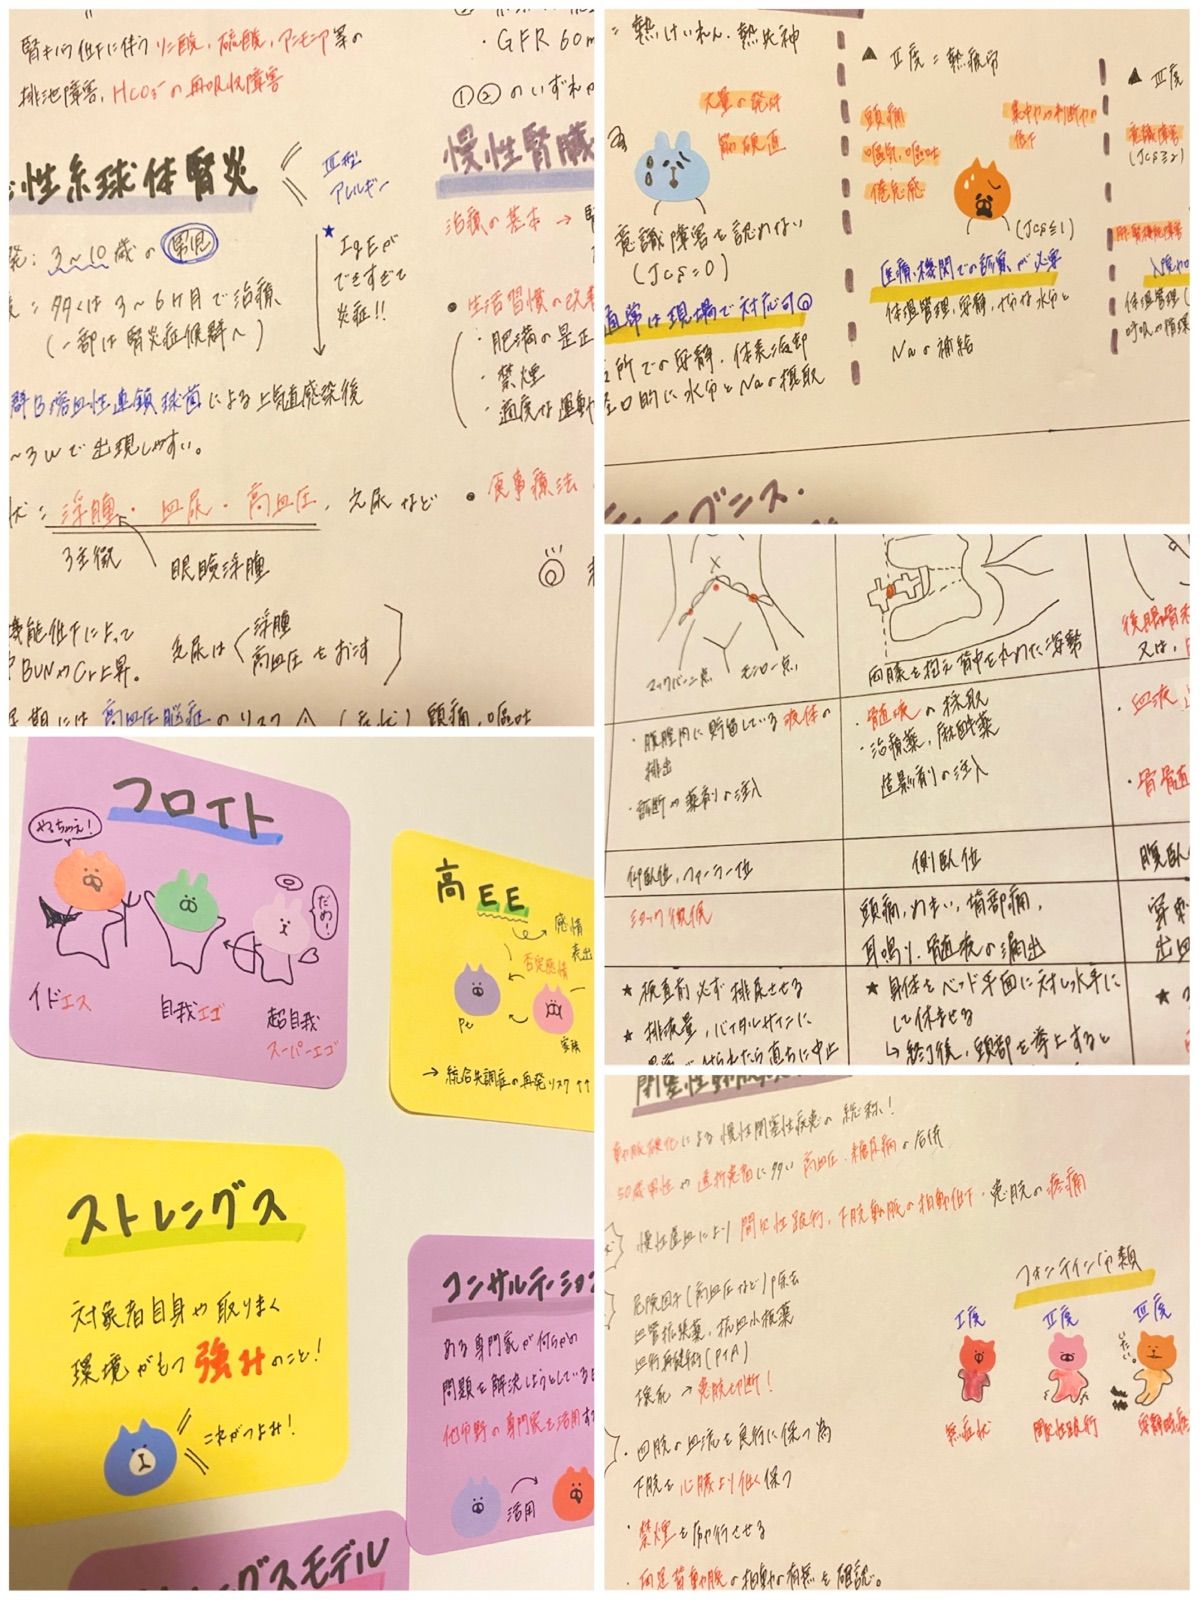 腎機能低下に伴うリン酸、硫酸、アンモニア等の
排泄障害、HCO₃⁻の再吸収障害
性糸球体腎炎
Ⅲ型
アレルギー
3〜10歳の男児
多くは3〜6ヶ月で治癒、
(一部は腎炎症候群へ)
★ IgEが
できすぎて
炎症!!
群β溶血性連鎖球菌による上気道感染後
〜3Wで出現しやすい。
浮腫・血尿・高血圧、乏尿など
3主徴
眼瞼浮腫
機能低下によって
BUNやCr上昇。
乏尿は
浮腫
高血圧をおこす
期には高血圧脳症のリスク
(症状)頭痛、嘔吐
・GFR 60m
①②のいずれか
慢性腎臓
治療の基本→
・生活習慣の改善
・肥満の是正
・禁煙
・適度な運動
・食事療法
=熱けいれん、熱失神
大量の発汗
筋硬直
意識障害を認めない
(JCS=0)
通常は現場で対応可
所での安静、体表冷却
経口的に水分とNaの摂取
▲Ⅱ度=熱疲労
頭痛
嘔気、嘔吐
倦怠感
集中力や判断力の
低下
(JCS≦1)
医療機関での診察が必要
体温管理、安静、十分な水分と
Naの補給
▲Ⅲ度
意識障害
(JCS≧2)
体温管理(
呼吸や循環
マックバーニー点
モンロー点
両膝を抱え背中を丸めた姿勢
・腹腔内に貯留している液体の
排出
・診断や薬剤の注入
・髄液の採取
・治療薬、麻酔薬
造影剤の注入
・血液
・骨髄
仰臥位、ファーラー位
側臥位
腹臥
ショック徴候
頭痛、めまい、背部痛、
耳鳴り、髄液の漏出
穿刺
出血
★検査前必ず排尿させる
★排液量、バイタルサインに
異常がみられたら直ちに中止
★身体をベッド平面に対し水平に
して休ませる
↳終了後、頭部を挙上すると
フロイト
やるちゃえ!
だめ!
イド エス
自我 エゴ
超自我
スーパーエゴ
高EE
感情
表出
否定感情
Pt
家族
→統合失調症の再発リスク↑↑
ストレングス
対象者自身や取りまく
環境がもつ強みのこと!
これがつよみ!
コンサルテーション
ある専門家が何らかの
問題を解決しようとしている
他分野の専門家を活用す
活用
ングスモデル
閉塞性動脈
動脈硬化による慢性閉塞性疾患の総称!
50歳男性や透析患者に多い 高血圧、糖尿病の合併
慢性虚血により間欠性跛行、下肢動脈の拍動低下、患肢の疼痛
危険因子(高血圧など)除去
血管拡張薬、抗血小板薬
血行再建術(PTA)
壊死→患肢切断!
・四肢の血流を良好に保つ為
下肢を心臓より低く保つ
・禁煙を励行させる
・両足背動脈の拍動の有無を確認。
フォンテイン分類
Ⅰ度
無症状
Ⅱ度
間欠性跛行
Ⅲ度
いたい。
安静時疼